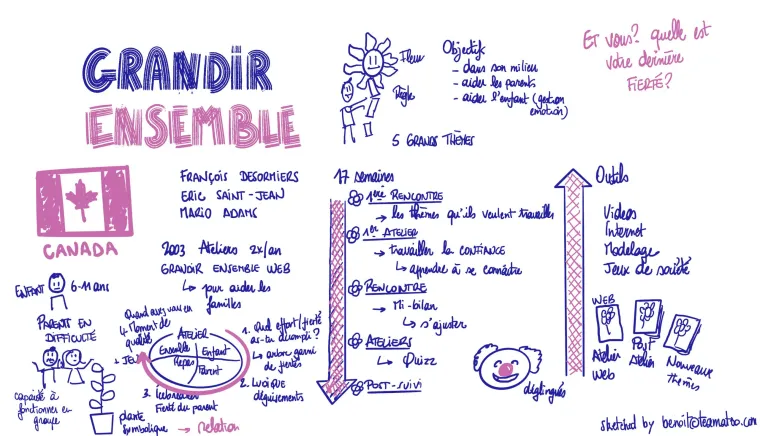 GRANDIR
ENSEMBLE
Fleur
Règle
Objectifs
- dans son milieu
- aider les parents
- aider l'enfant (gestion
émotion)
5 GRANDS THÈMES
Et vous? quelle est
votre dernière
FIERTÉ?
CANADA
FRANÇOIS DESORMIERS
ERIC SAINT-JEAN
MARIO ADAMS
2003 Ateliers 2x/an
GRANDIR ENSEMBLE WEB
↳ pour aider les
familles
ENFANT 6-11 ans
PARENT EN
DIFFICULTÉ
capacité à
fonctionner en
groupe
plante
symbolique → relation
4. Moment de
qualité
+ JEU
ATELIER
Ensemble
Enfant
Repas
Parent
1. Quel effort/fierté
as-tu accompli?
↳ arbre garni
de fiertés
2. LUDIQUE
déguisements
3. Icebreaker
Fierté du parent
17 semaines
1ère RENCONTRE
→ les thèmes qu'ils veulent travailler
1er ATELIER
→ travailler la CONFIANCE
↳ apprendre à se connaître
RENCONTRE
→ Mi-bilan
↳ s'ajuster
ATELIERS
↳ Quizz
POST-SUIVI
déglingués
Outils
Videos
Internet
Modelage
Jeux de société
WEB
Atelier
web
Post
Atelier
Nouveaux
thèmes
sketched by benoit@teamatoo.com